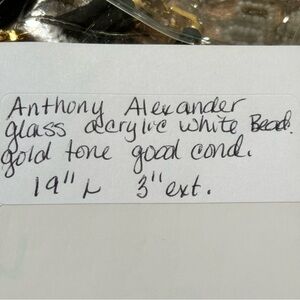 Anthony Alexander
glass acrylic white Bead.
gold tone good cond.
19" L 3" ext.